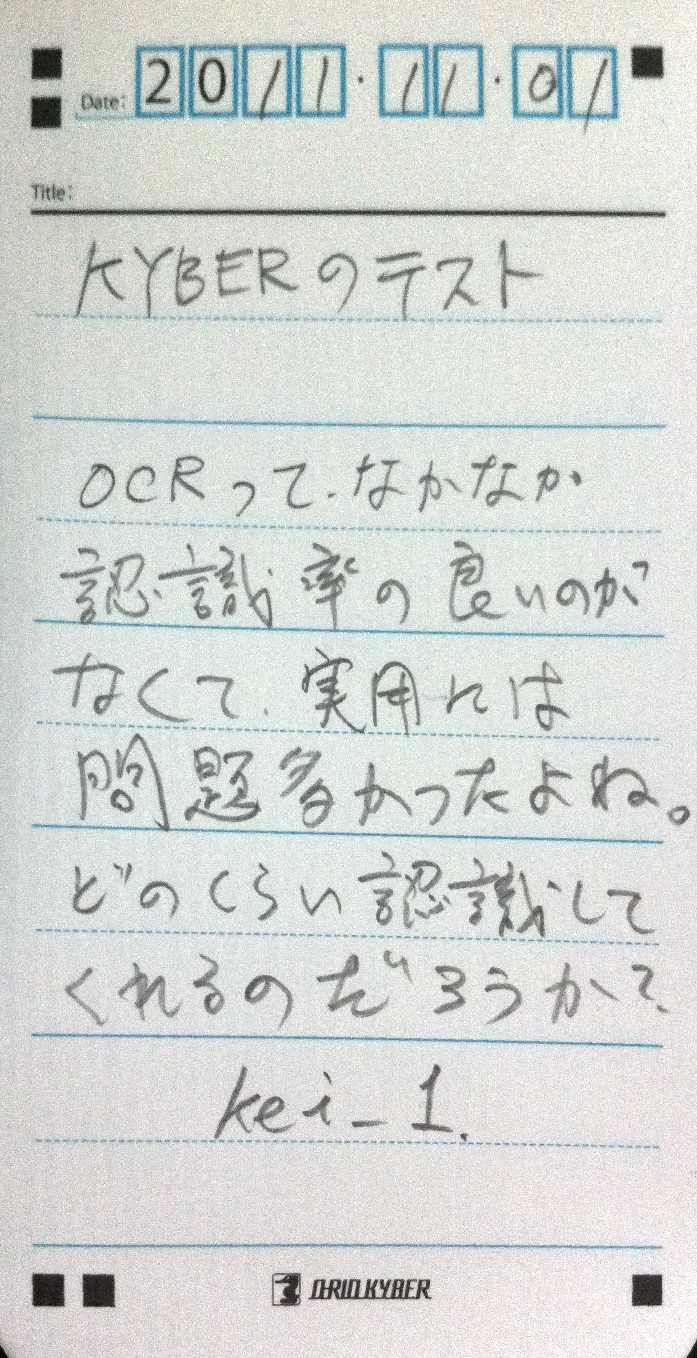 Date: 2011・11・01
Title:
KYBERのテスト
OCRって、なかなか
認識率の良いのが
なくて、実用には
問題多かったよね。
どのくらい認識して
くれるのだろうか？
kei_1.
O-RID KYBER